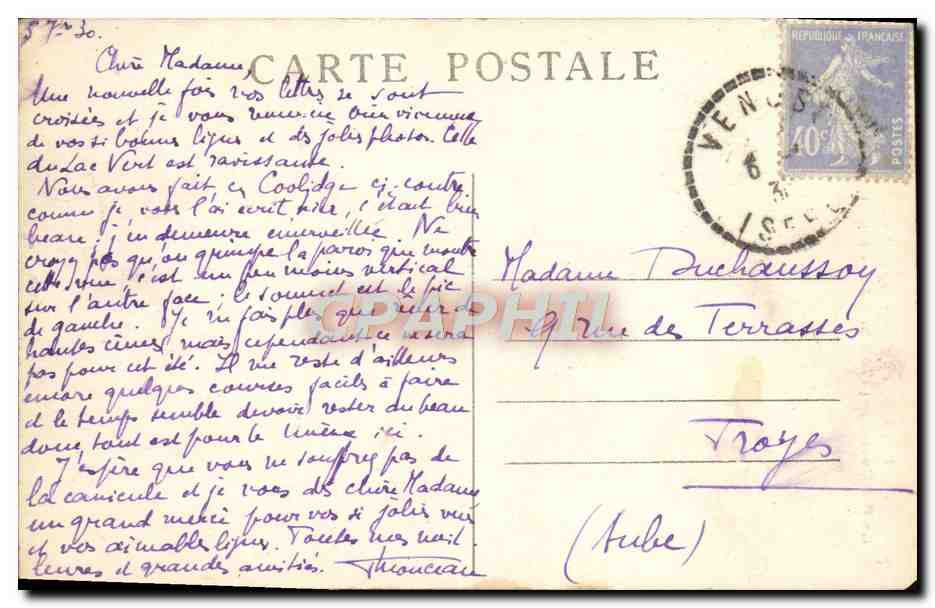 5 7re 30.
CARTE POSTALE
Chère Madame,
Une nouvelle fois vos lettres se sont
croisées et je vous remercie bien vivement
de vos si bonnes lignes et des jolies photos. Celle
du Lac Vert est ravissante.
Nous avons fait ce Coolidge ci-contre
comme je vous l'ai écrit hier, c'était bien
beau; j'en demeure émerveillée. Ne
croyez pas qu'on grimpe la paroi que montre
cette vue, c'est un peu moins vertical
sur l'autre face; le sommet est le pic
de gauche. Je ne fais plus que rêver de
hautes cîmes, mais cependant ce ne sera
pas pour cet été. Il me reste d'ailleurs
encore quelques courses faciles à faire
et le temps semble devoir rester au beau
donc tout est pour le mieux ici.
J'espère que vous ne souffrez pas de
la canicule et je vous dis chère Madame
un grand merci pour vos si jolies vues
et vos aimables lignes. Toutes mes meil-
leures et grandes amitiés.
RÉPUBLIQUE FRANÇAISE
40c
POSTES
VENOSC
6
3
ISERE
Madame Duchaussoy
9 rue des Terrasses
Troyes
(Aube)
CPAPHIL